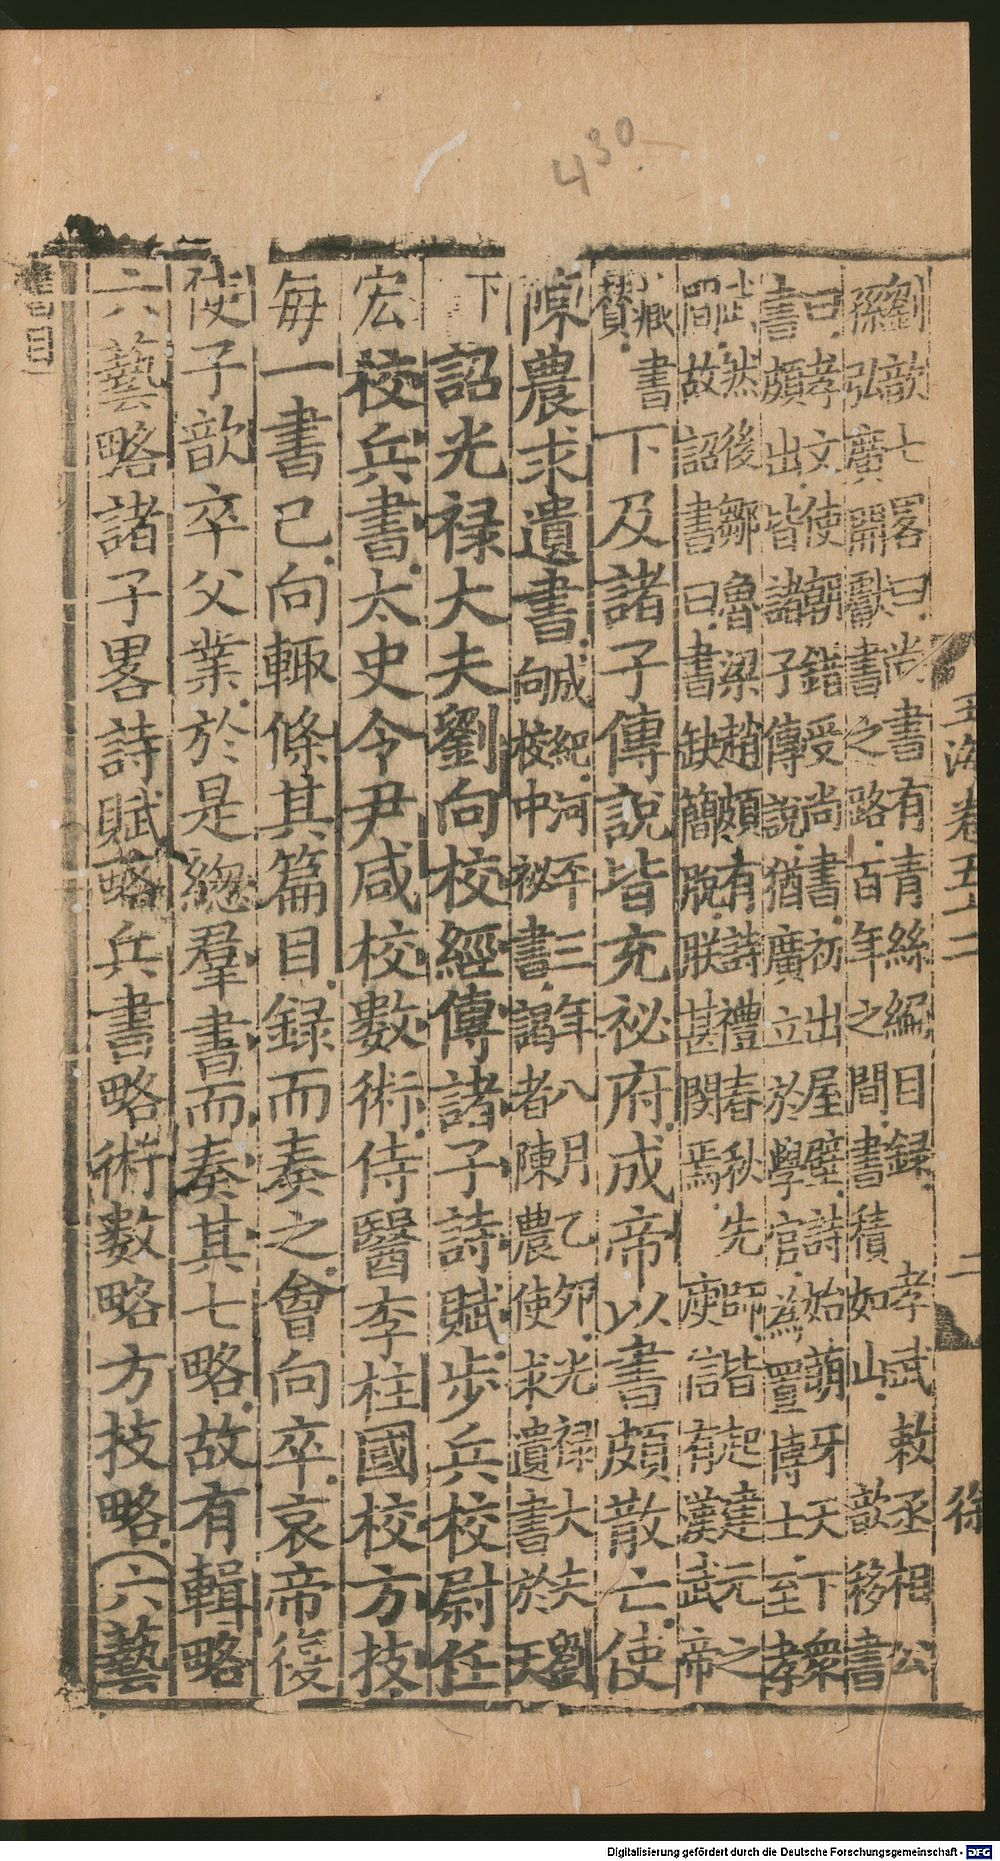 430
玉海卷五十二 二 徐
劉歆七畧曰尚書有青絲編目録 孝武敕丞相公
孫弘廣開獻書之路百年之間書積如山 歆移書
曰孝文使朝錯受尚書初出屋壁詩始萌牙天下衆
書頗出皆諸子傳說猶廣立於學官為置博士至孝
武然後鄒魯梁趙頗有詩禮春秋先師皆起建元之
間故詔書曰書缺簡脫朕甚閔焉 庾信有漢武帝
書
賛
下及諸子傳說皆充祕府成帝以書頗散亡使
陳農求遺書
成紀河平三年八月乙夘光禄大夫劉
向校中祕書謁者陳農使求遺書於天
下
詔光禄大夫劉向校經傳諸子詩賦步兵校尉任
宏校兵書太史令尹咸校數術侍醫李柱國校方技
每一書已向輒條其篇目録而奏之會向卒哀帝復
使子歆卒父業於是緫羣書而奏其七略故有輯略
六藝略諸子畧詩賦略兵書略術數略方技略六藝
書目
Digitalisierung gefördert durch die Deutsche Forschungsgemeinschaft - DFG